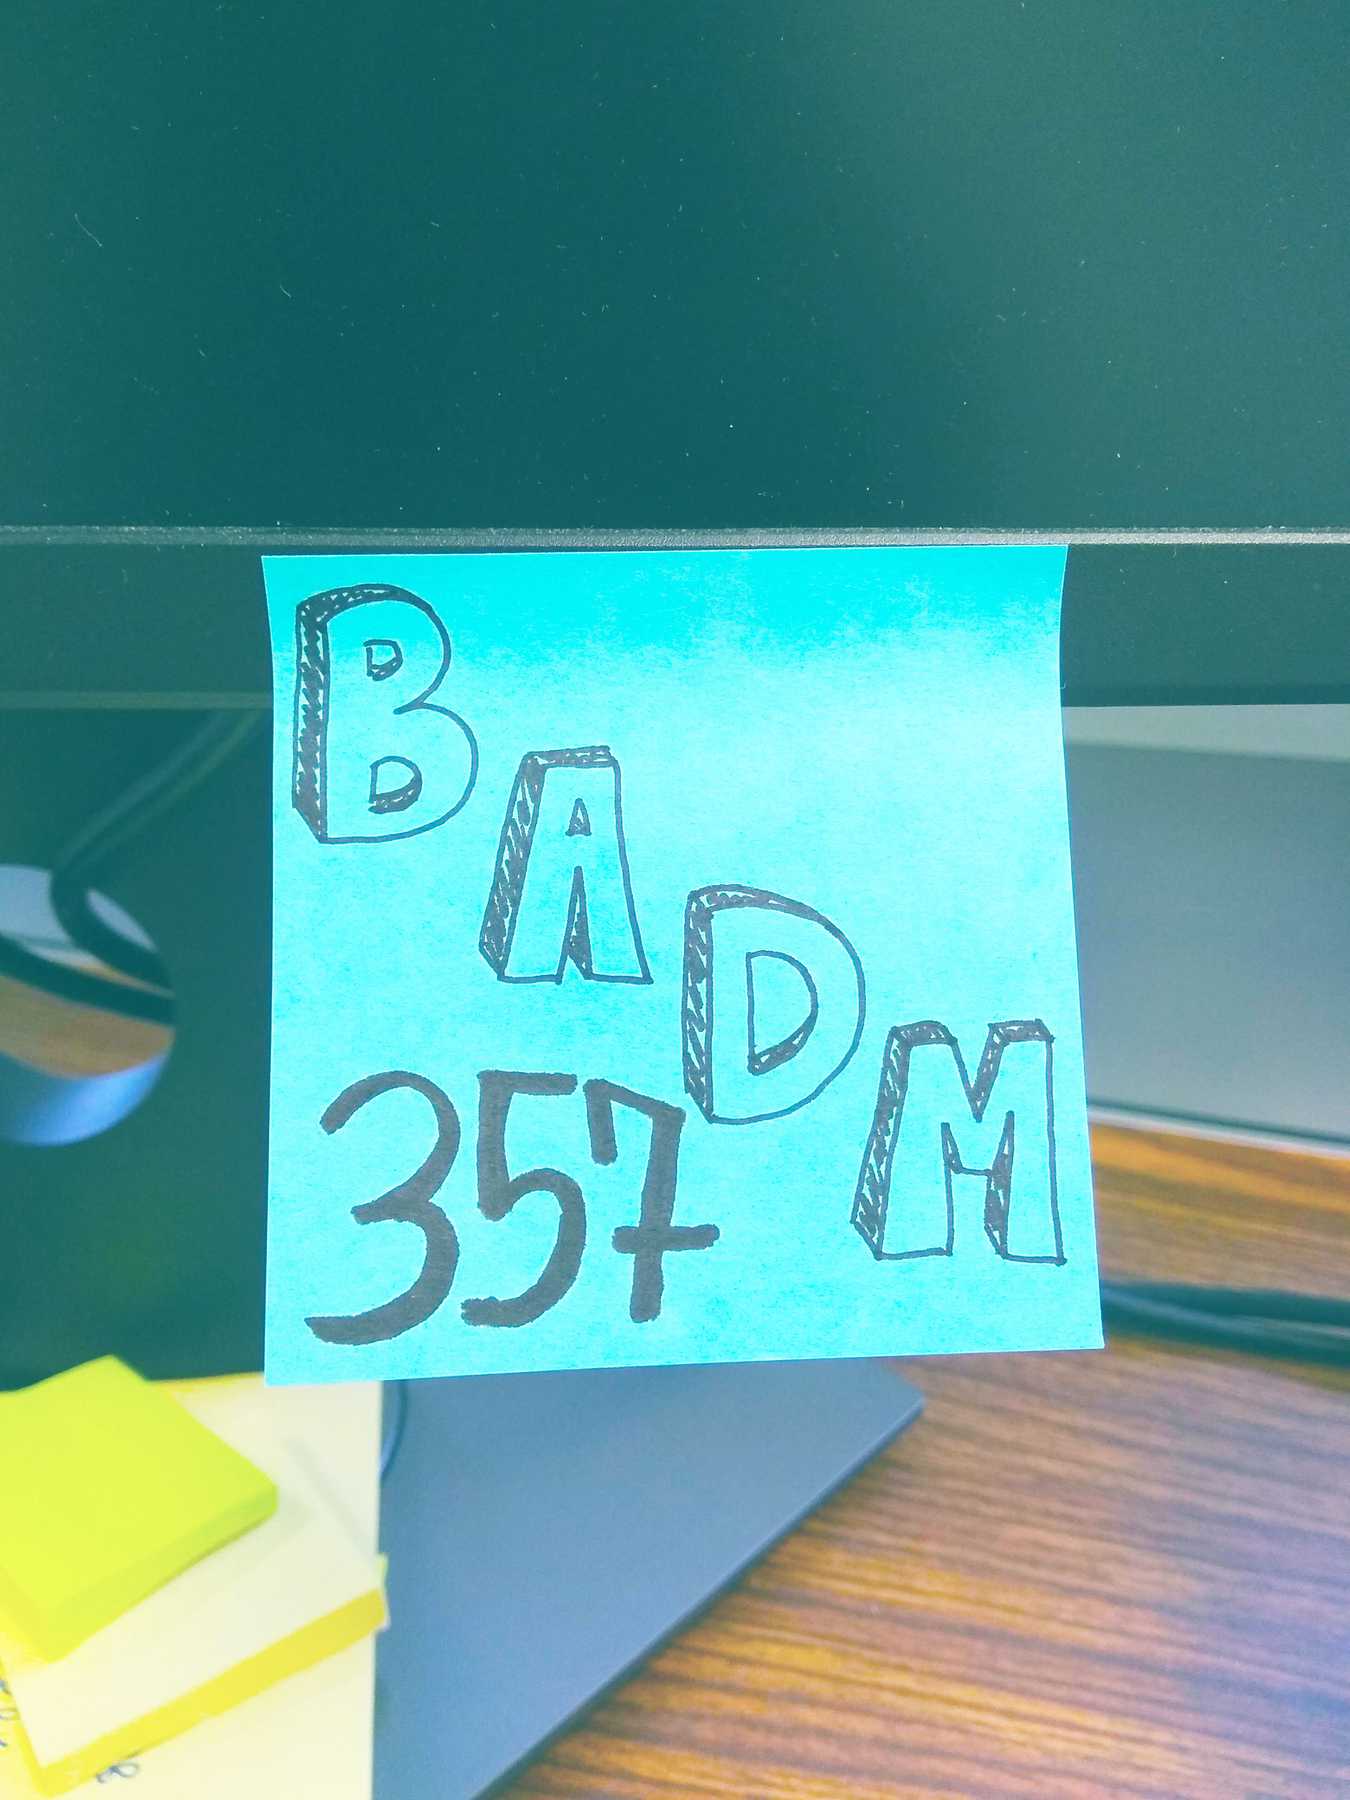 BADM
357